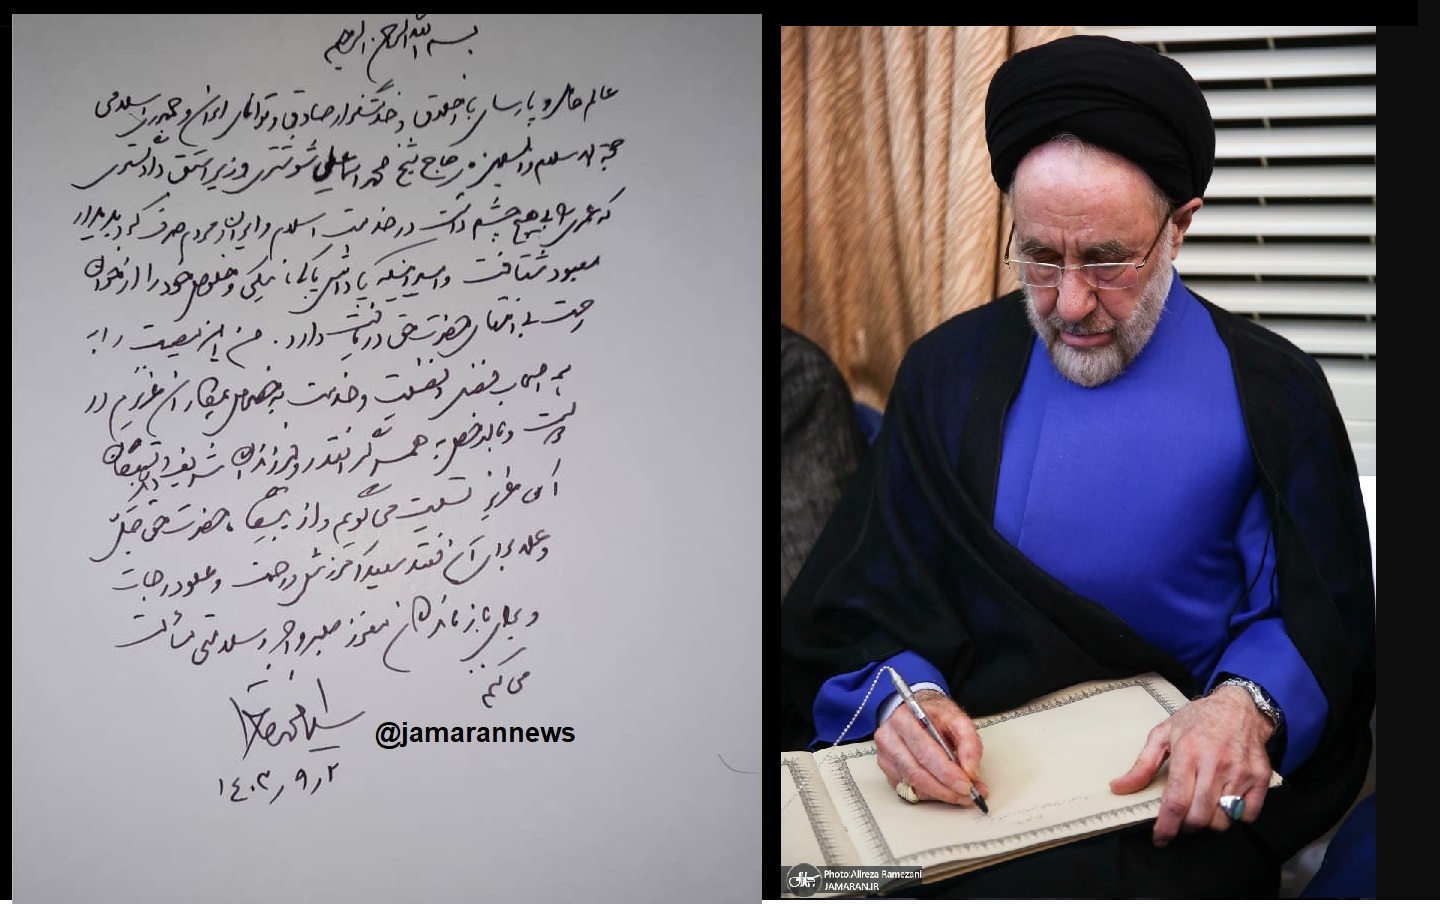 بسم الله الرحمن الرحیم
عالم عامل و پارسای با اخلاق و خدمتگزار صادق و توانای ایران و جمهوری اسلامی
حجة الاسلام والمسلمین حاج شیخ محمد اسماعیل شوشتری وزیر اسبق دادگستری
که عمری بی هیچ چشم داشت در خدمت اسلام و ایران و مردم صرف کرد به دیدار
معبود شتافت و امید اینکه پاداش پاکی، نیکی و خلوص خود را از خوان
رحمت بی انتهای حضرت حق دریافت دارد. من این مصیبت را به
همه اصحاب فضل و فضیلت و خدمت به خصوص همکاران عزیزم در
دولت و بالاخص به همسر گرانقدر و فرزندان شریف و بستگان
آن عزیز تسلیت می گویم و از پیشگاه حضرت حق جل
و علا برای آن فقید سعید آمرزش و رحمت و علو درجات
و برای بازماندگان معزز صبر و اجر و سلامتی مسألت
می کنم
سید محمد خاتمی
@jamarannews
۱۴۰۳ر۹ر۲
Photo:Alireza Ramezani
JAMARAN.IR